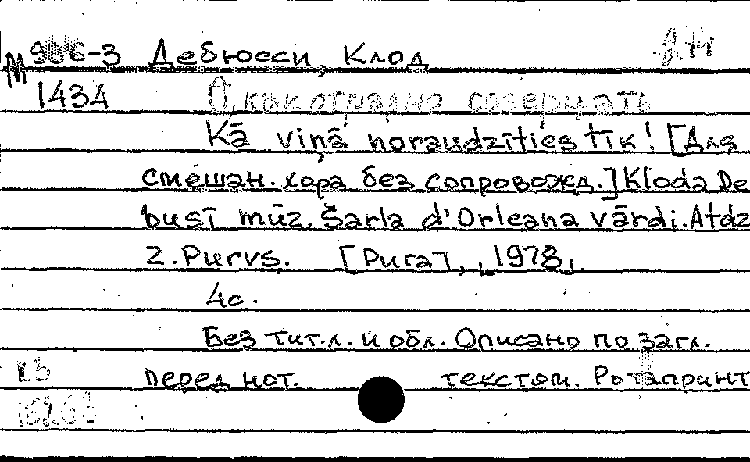 М 906-3 Дебюсси, Клод
1434 О, как отрадно созерцать
Kā viņā noraudzīties tīk! [Для
смешан. хора без сопровожд.] Kloda De
busī mūz. Šarla d'Orleana vārdi. Atdz
Z. Purvs. [Рига], 1978.
4с.
Без тит.л. и обл. Описано по загл.
перед нот. текстом. Ротапринт